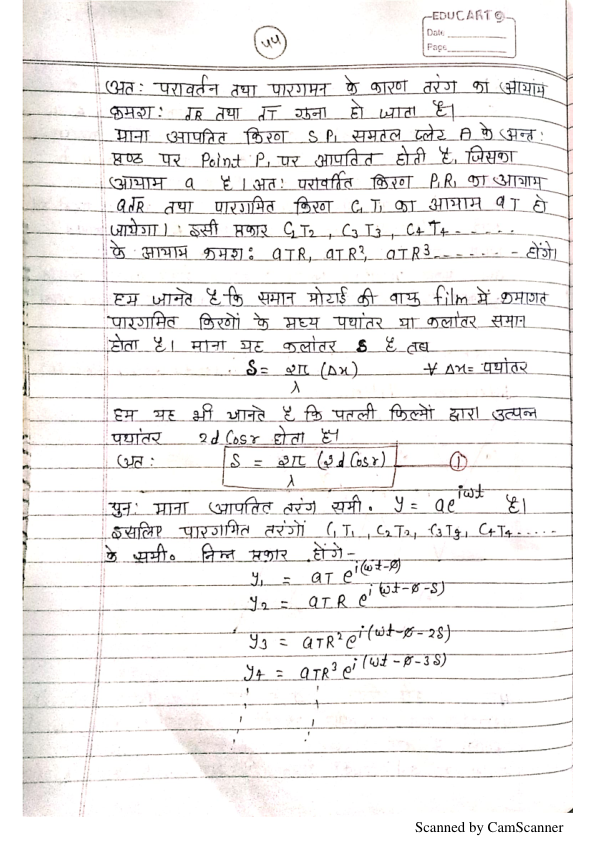 44
EDUCART
Date
Page
अतः परावर्तन तथा पारगमन के कारण तरंग का आयाम
क्रमशः √R तथा √T गुना हो जाता है।
माना आपतित किरण S P₁ समतल प्लेट A के अन्तः
पृष्ठ पर Point P₁ पर आपतित होती है, जिसका
आयाम a है। अतः परावर्तित किरण P₁R₁ का आयाम
a√R तथा पारगमित किरण C₁T₁ का आयाम aT हो
जायेगा। इसी प्रकार C₂T₂, C₃T₃, C₄T₄......
के आयाम क्रमशः aTR, aTR², aTR³....... होंगे।
हम जानते है कि समान मोटाई की वायु film में क्रमागत
पारगमित किरणों के मध्य पथांतर या कलांतर समान
होता है। माना यह कलांतर S है तब
S = 2π/λ (Δx) ∀ Δx = पथांतर
हम यह भी जानते है कि पतली फिल्मों द्वारा उत्पन्न
पथांतर 2d Cosr होता है।
अतः S = 2π/λ (2d Cosr) ①
पुनः माना आपतित तरंग समी. y = ae^iωt है।
इसलिए पारगमित तरंगों C₁T₁, C₂T₂, C₃T₃, C₄T₄.....
के समी. निम्न प्रकार होंगे-
y₁ = aT e^i(ωt-ø)
y₂ = aTR e^i(ωt-ø-S)
y₃ = aTR² e^i(ωt-ø-2S)
y₄ = aTR³ e^i(ωt-ø-3S)
Scanned by CamScanner